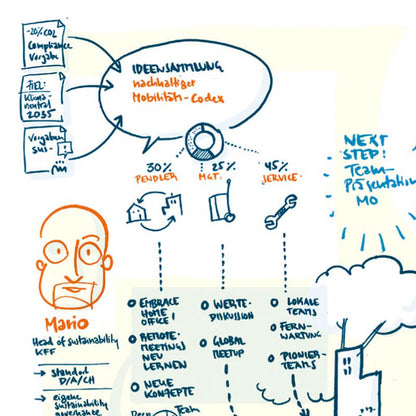 -20% CO2
Compliance
Vorgabe
ZIEL:
Klima-
neutral
2035
Vorgaben
IDEENSAMMLUNG
nachhaltiger
Mobilitäts-Codex
30%
PENDLER
25%
MGT.
45%
SERVICE
NEXT
STEP:
Team-
Präsentation
MO
Mario
Head of sustainability
KFF
→ standort
D/A/CH
→ eigene
sustainability
governance
EMBRACE
HOME
OFFICE!
REMOTE-
MEETINGS
NEU
LERNEN
NEUE
KONZEPTE
WERTE-
DISKUSSION
GLOBAL
MEETUP
LOKALE
TEAMS
FERN-
WARTUNG
PIONIER-
TEAMS
Team